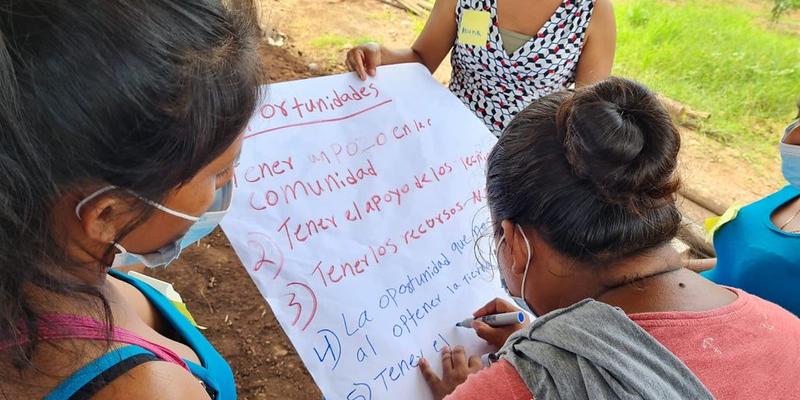 portunidades
ener un pozo en la
comunidad
2) Tener el apoyo de los
3) Tener los recursos
4) La oportunidad que
al obtener la tierra
5) Tener el